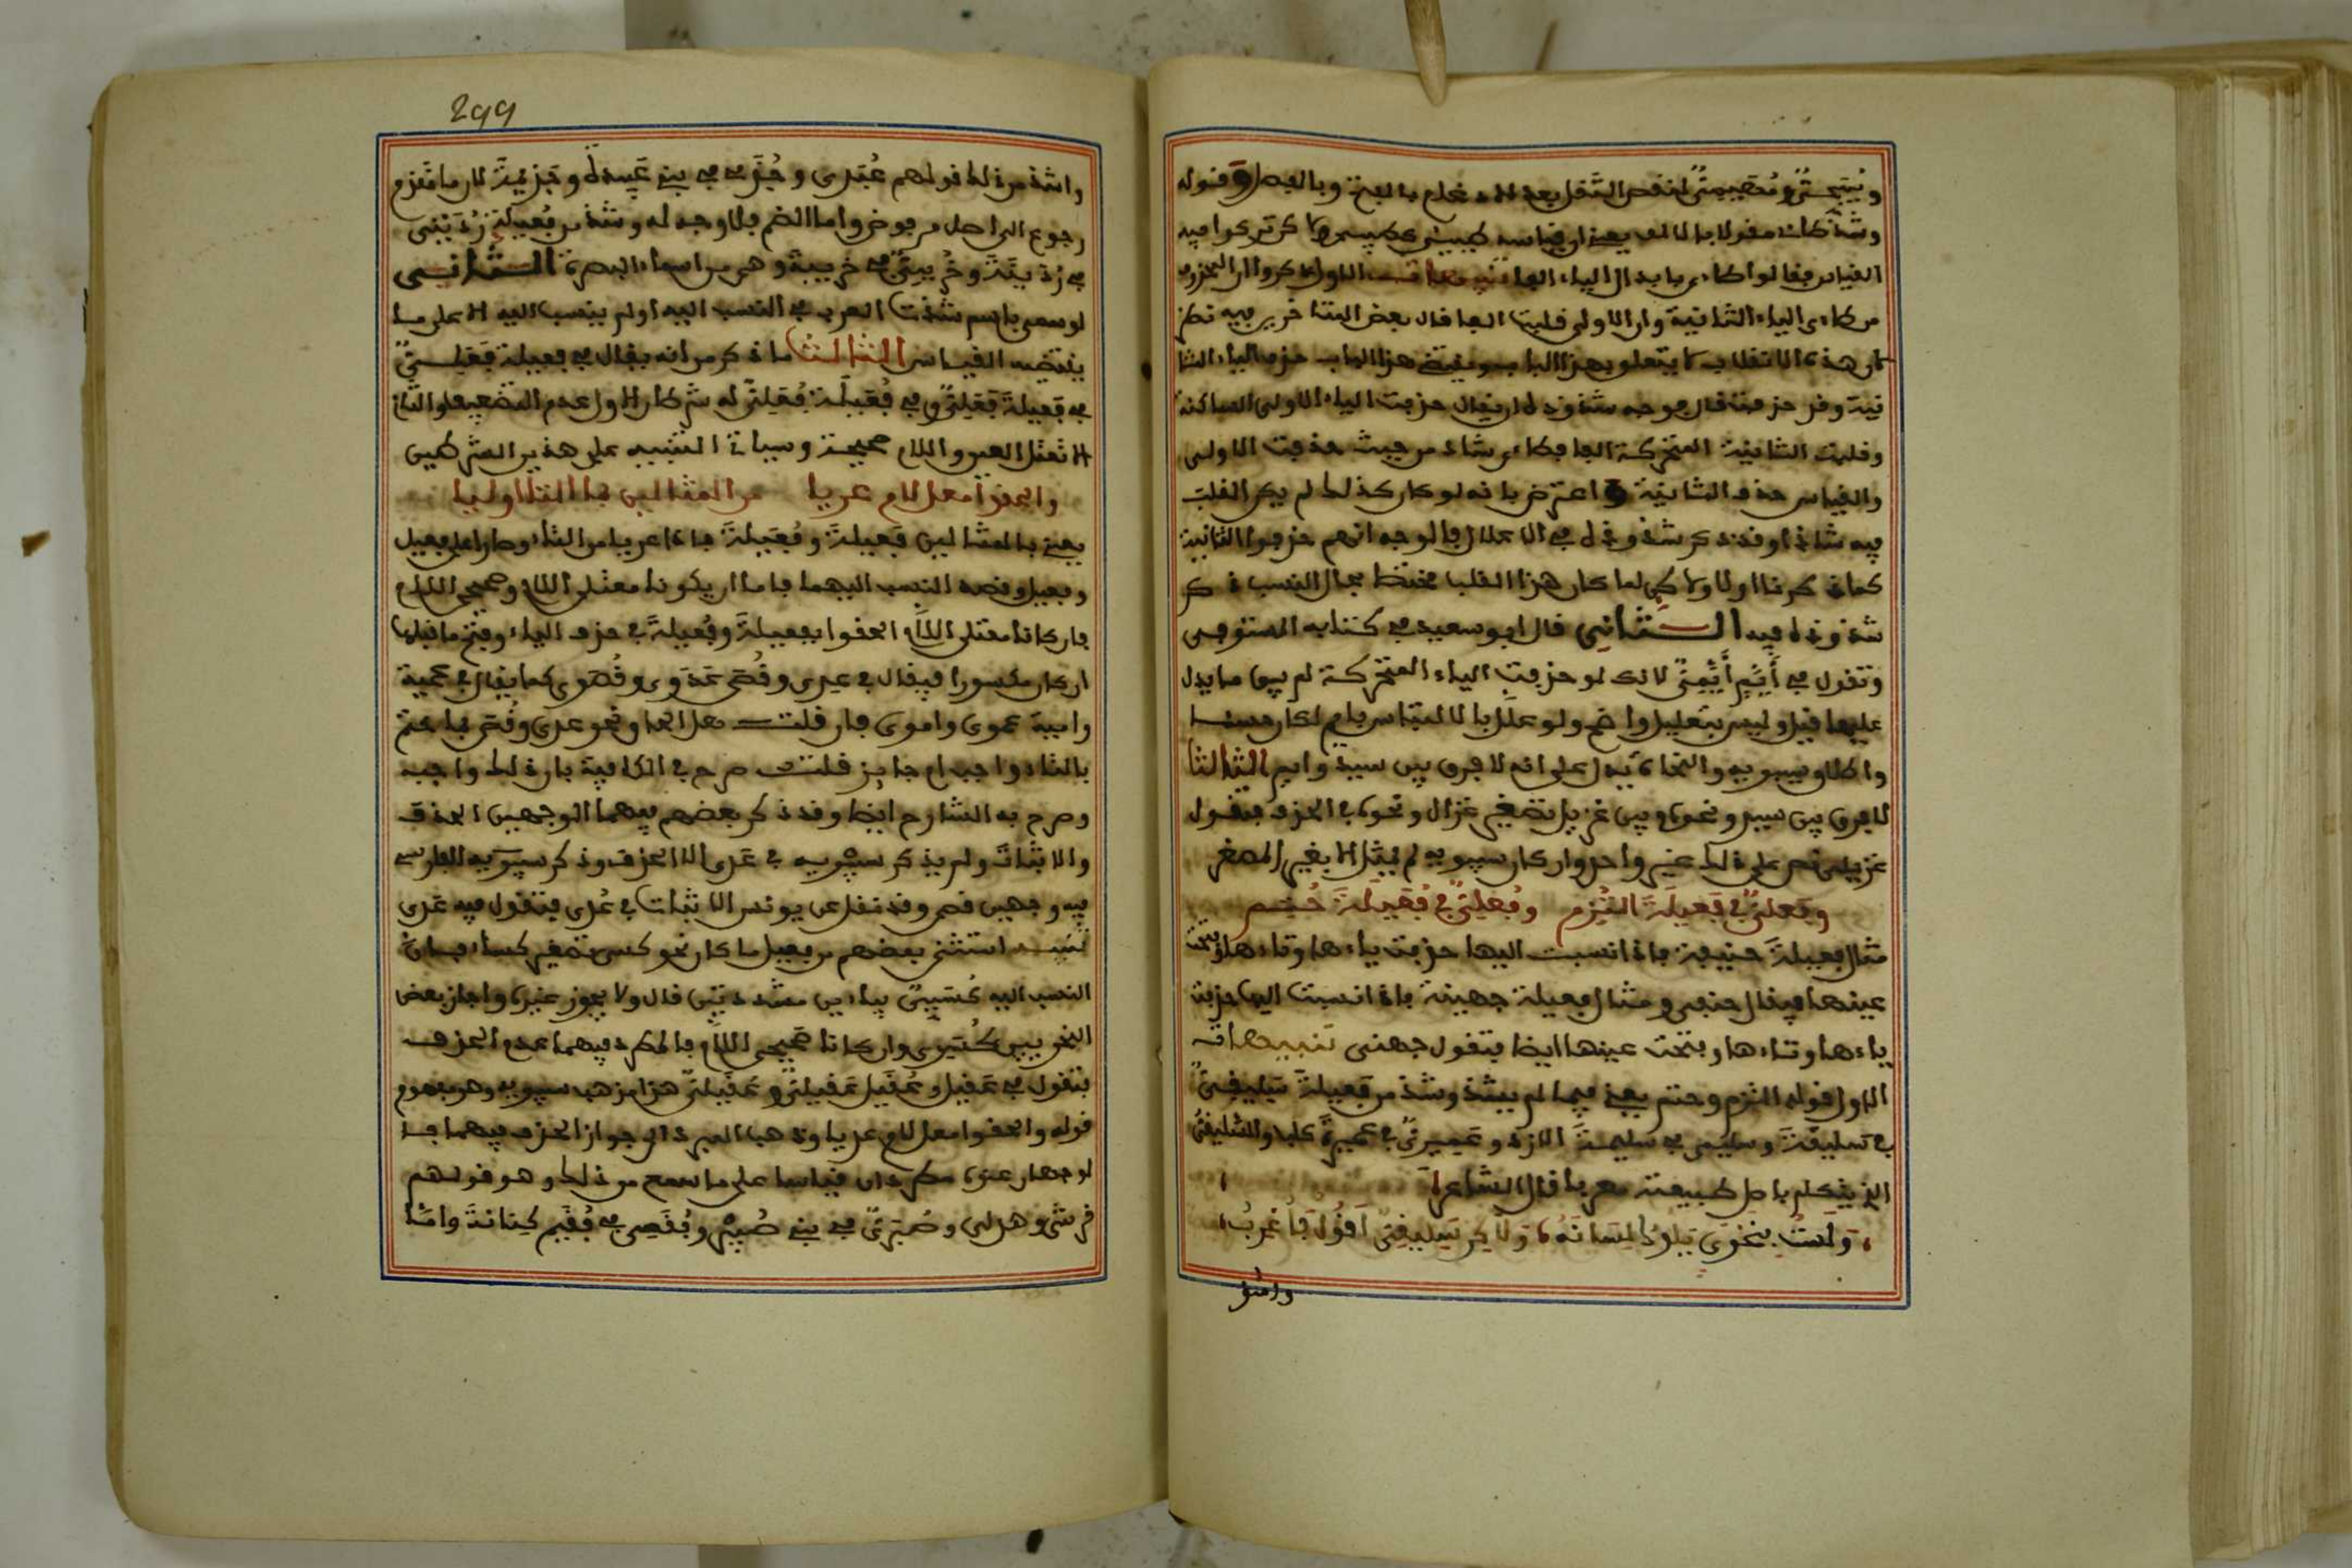 وشذ كان مقولا بالالف يعني ان قياسه كيبئي كسيدي ولاكن تركوا فيه
القياس فقالوا كاءي بابدال الياء الفا
من كاءي الياء الثانية وان الاولى قلبت الفا قال بعض المتأخرين فيه نظر
لان هذا الانقلاب لا يتعلق بهذا الباب سوى هذا الباب حذف الياء الثا
نية وقد حذفت قال موجه شذوذه ان يقال حذفت الياء الاولى الساكنة
وقلبت الثانية المتحركة الفا فكان شاذا من حيث حذفت الاولى
والقياس حذف الثانية واعترض بانه لو كان كذلك لم يكن القلب
فيه شاذا وقد ذكر شذوذه في الاعلال فالوجه انهم حذفوا الثانية
كما ذكرنا اولا ولاكن لما كان هذا القلب مختصا بحال النسب ذكر
شذوذه فيه الثاني قال ابو سعيد في كتابه المستوفى
وتقول في أييم أييمي لانك لو حذفت الياء المتحركة لم يبق ما يدل
عليها قيل وليس بتعليل واضح ولو علل بالالتباس بايم لكان حسنا
واطلاق سيبويه والنحاة يدل على انه لا فرق بين سيد وايم الثالث
لا فرق بين سيد ونحوه وبين غزيل تصغير غزال ونحوه في الحذف فتقول
غزيلي نص على ذلك غير واحد وان كان سيبويه لم يمثل الا بغير المصغر
وفعلي في فعيلة التزم وفعلي في فعيلة حتم
مثال فعيلة حنيفة فاذا نسبت اليها حذفت ياءها وتاءها وفتحت
عينها فيقال حنفي ومثال فعيلة جهينة فاذا نسبت اليها حذفت
ياءها وتاءها وفتحت عينها ايضا فتقول جهني تنبيهات
الاول قوله التزم وحتم يعني فيما لم يشذ وشذ من فعيلة سليقي
في سليقة وسليمي في سليمة الازد وعميري في عميرة كلب والسليقي
الذي يتكلم باصل طبيعته معربا قال الشاعر
ولست بنحوي يلوك لسانه ولاكن سليقي اقول فاعرب
واشذ
299
واشذ من ذلك قولهم عبدي وجذمي في بني عبيدة وجذيمة لان ما تقدم
رجوع الى اصل مرفوض واما الضم فلا وجه له وشذ من فعيلة ردينى
في ردينة وخريبي في خريبة وهي من اسماء البصرة الثاني
لو سمي باسم شذت العرب في النسب اليه او لم ينسب اليه الا على ما
يقتضيه القياس الثالث ما ذكر من انه يقال في فعيلة فعلي
في فعيلة فعلي وفي فعيلة فعلي له شرطان الاول عدم التضعيف والثاني
الا تعتل العين واللام صحيحة وسياتي التنبيه على هذين الشرطين
والحقوا معل لام عريا من المثالين بما التا اوليا
يعني بالمثالين فعيلة وفعيلة فاذا عريا من التاء وصارا على فعيل
وفعيل وقصد النسب اليهما فاما ان يكونا معتلي اللام وصحيحي اللام
فان كانا معتلي اللام الحقوا بفعيلة وفعيلة في حذف الياء وفتح ما قبلها
ان كان مكسورا فيقال في عدي وقصي عدوي وقصوي كما يقال في عمية
وامية عموي واموي فان قلت هل الحاق نحو عدي وقصي بما ختم
بالتاء واجب ام جايز قلت صرح في الكافية بان ذلك واجب
وصرح به الشارح ايضا وقد ذكر بعضهم فيهما الوجهين الحذف
والاثبات ولم يذكر سيبويه في عدي الا الحذف وذكر سيبويه الفارسي
فيه وجهين قصي وقد نقل عن يونس الاثبات في عدي فتقول فيه عدي
تنبيه استثنى بعضهم من فعيل ما كان نحو كسي تصغير كساء فان
النسب اليه كسيي بياءين مشددتين قال ولا يجوز غيره واجاز بعض
النحويين كسوي وان كانا صحيحي اللام فالمطرد فيهما عدم الحذف
فتقول في عقيل وعقيل عقيلي وعقيلي هذا مذهب سيبويه وهو مفهوم
قوله والحقوا معل لام عريا وذهب المبرد الى جواز الحذف فيهما فا
لوجهان عنده مطردان قياسا على ما سمع من ذلك وهو قولهم
قرشي وهذلي وصبري في بني صبير وفقمي في فقيم كنانة وامثا